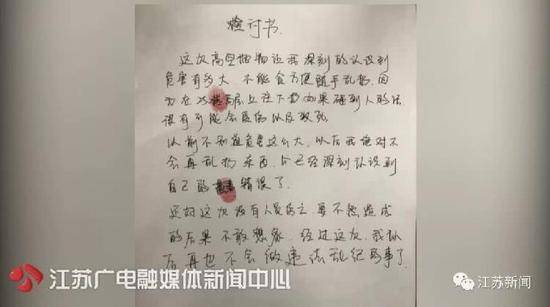 检讨书
这次高空抛物让我深刻的认识到
危害有多大 不能贪方便随手乱扔.因
为在25楼 高层上往下扔如果砸到人的话
很有可能会受伤以及致死
以前不知道危害这么大.以后我绝对不
会再乱扔东西.今已经深刻认识到
自己的 错误了.
还好这次没有人员伤亡 要不然造成
的后果 不敢想象 经过这次.我以
后再也不会做违法乱纪的事了
江苏广电融媒体新闻中心
江苏新闻